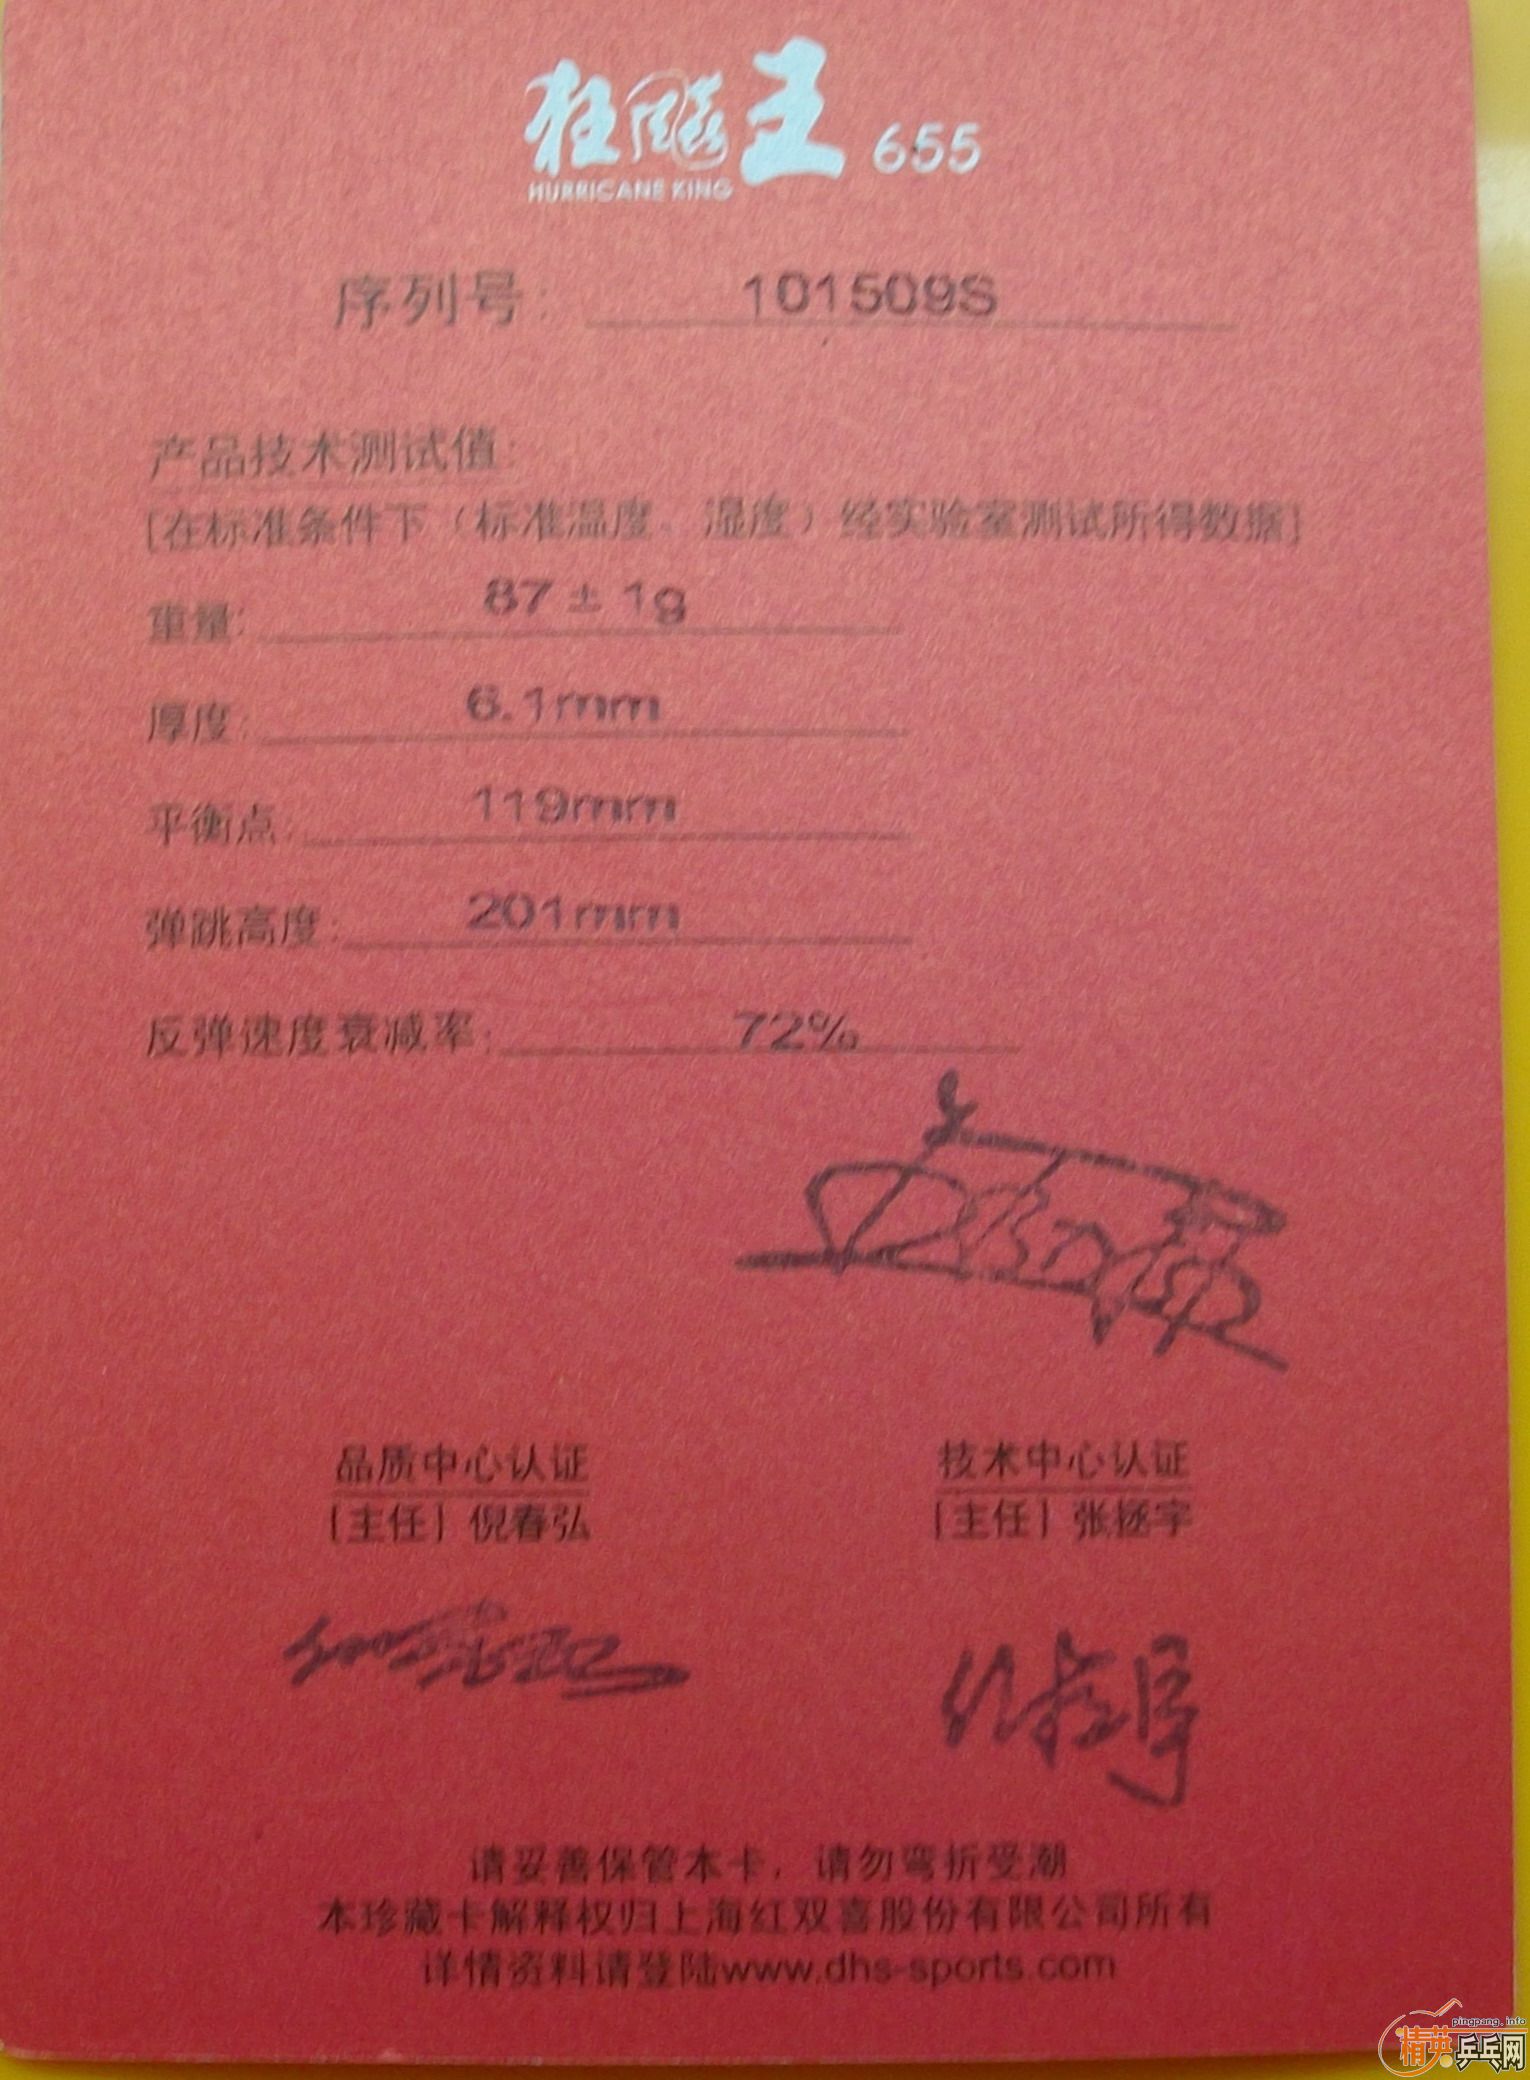 狂飚王 655
HURRICANE KING
序列号: 101509S
产品技术测试值:
[在标准条件下（标准温度、湿度）经实验室测试所得数据]
重量: 87 ± 1g
厚度: 6.1mm
平衡点: 119mm
弹跳高度: 201mm
反弹速度衰减率: 72%
品质中心认证 技术中心认证
[主任] 倪春弘 [主任] 张拯宇
请妥善保管本卡，请勿弯折受潮
本珍藏卡解释权归上海红双喜股份有限公司所有
详情资料请登陆www.dhs-sports.com
pingpang.info
精英乒乓网